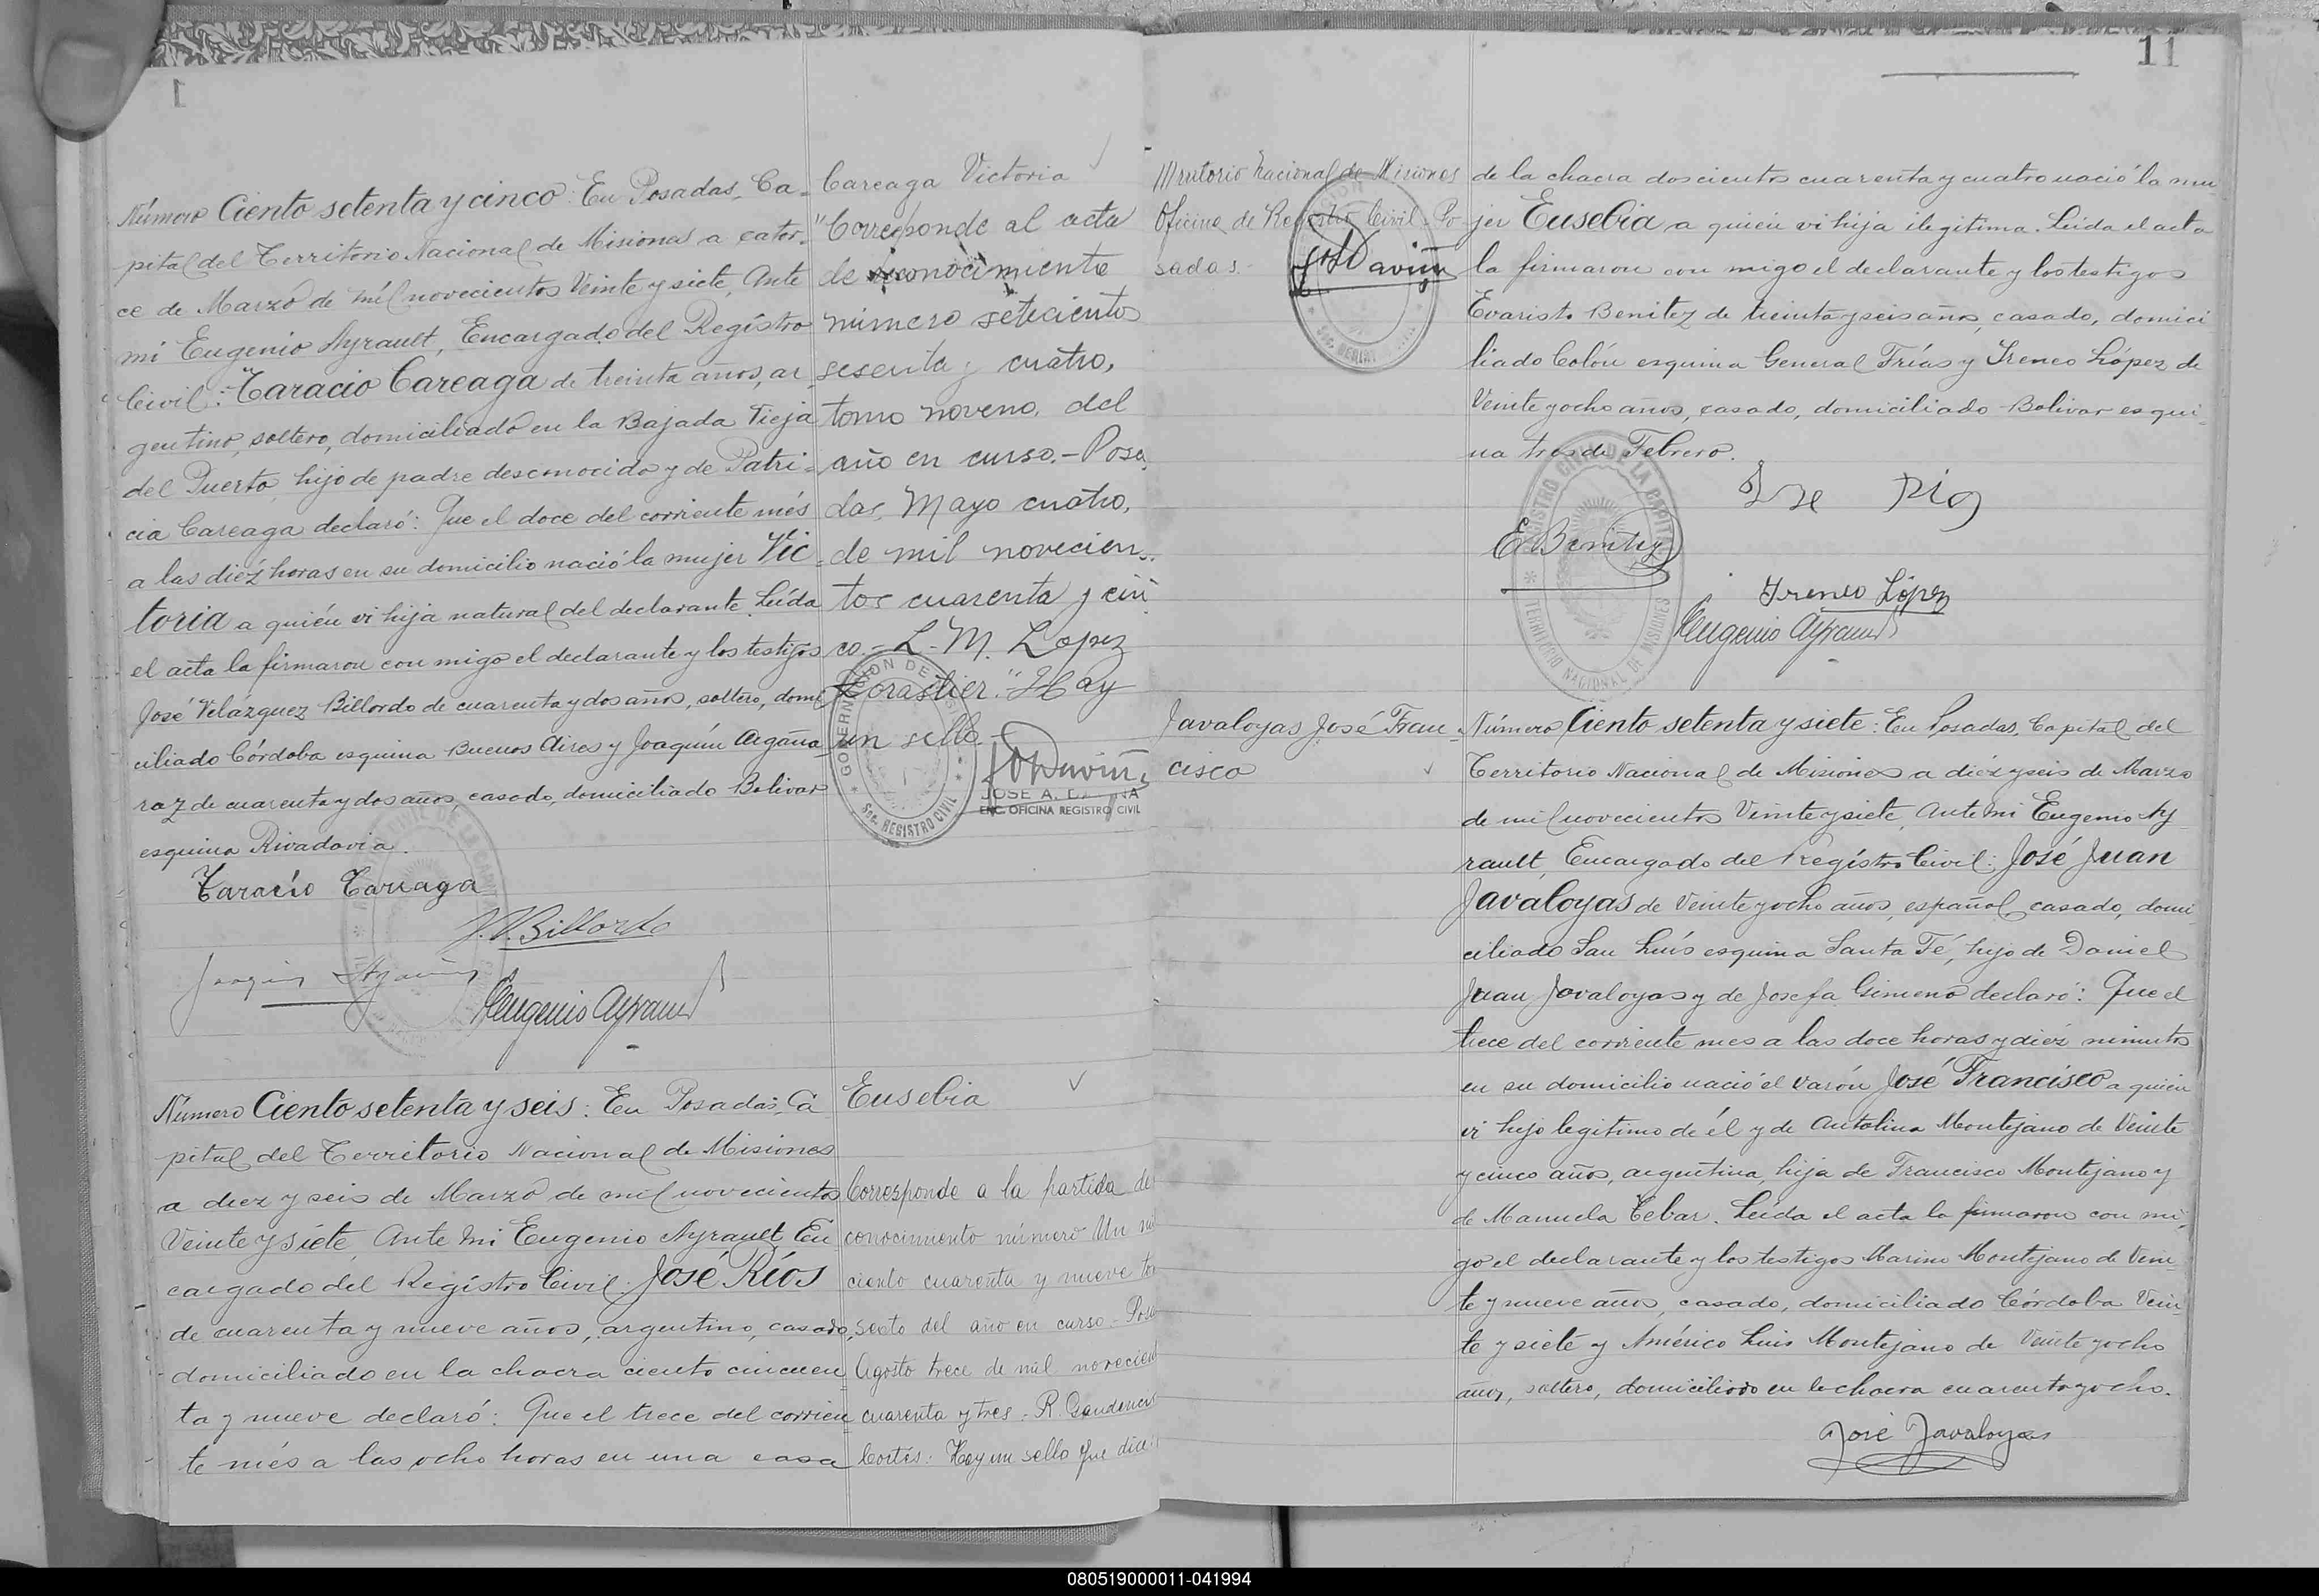 Número Ciento setenta y cinco: En Posadas, Ca-
pital del Territorio Nacional de Misiones a cator-
ce de Marzo de mil novecientos Veinte y siete, Ante
mi Eugenio Ayrault, Encargado del Registro
Civil: Taracio Careaga de treinta años, ar
gentino, soltero, domiciliado en la Bajada Vieja
del Puerto, hijo de padre desconocido y de Patri-
cia Careaga declaró: Que el doce del corriente més
a las diéz horas en su domicilio nació la mujer Vic-
toria a quién vi hija natural del declarante. Leída
el acta la firmaron con migo el declarante y los testigos
José Velázquez Billordo de cuarenta y dos años, soltero, domi
ciliado Córdoba esquina Buenos Aires y Joaquín Argaña
raz de cuarenta y dos años, casado, domiciliado Bolivar
esquina Rivadavia.
Taracio Careaga
J. V. Billordo
Eugenio Ayrault
Careaga Victoria
"Corresponde al acta
de reconocimiento
número setecientos
sesenta y cuatro,
tomo noveno, del
año en curso.- Posa
das, Mayo cuatro,
de mil novecien-
tos cuarenta y cin
co.- L. M. Lopez
Forastier." Hay
un sello.-
GOBERNACION DE
Sec. REGISTRO CIVIL
JOSE A.
ENC. OFICINA REGISTRO CIVIL
Número Ciento setenta y seis: En Posadas, Ca
pital del Territorio Nacional de Misiones
a diez y seis de Marzo de mil novecientos
Veinte y siete, Ante Mi Eugenio Ayrault En
cargado del Registro Civil: José Ríos
de cuarenta y nueve años, argentino, casado,
domiciliado en la chacra ciento cincuen
ta y nueve declaró: Que el trece del corrien
te més a las ocho horas en una casa
Eusebia
Corresponde a la partida de
conocimiento número Un mil
ciento cuarenta y nueve to
sexto del año en curso - Posa
Agosto trece de mil novecien
cuarenta y tres - R. Gaudencio
Cortés: Hay un sello que dice:
11
Territorio Nacional de Misiones
Oficina de Registro Civil - Po
sadas.-
de la chacra doscientos cuarenta y cuatro nació la mu
jer Eusebia a quién vi hija ilegitima. Leída el acta
la firmaron con migo el declarante y los testigos
Evaristo Benitez de treinta y seis años, casado, domici
liado Colón esquina General Frías y Ireneo López de
Veinte y ocho años, casado, domiciliado Bolivar esqui-
na tres de Febrero.
E Benitez
Ireneo López
Eugenio Ayrault
REGISTRO CIVIL DE LA CAPITAL
TERRITORIO NACIONAL DE MISIONES
Javaloyas José Fran-
cisco
Número Ciento setenta y siete: En Posadas, Capital del
Territorio Nacional de Misiones a diéz y seis de Marzo
de mil novecientos Veinte y siete, Ante Mi Eugenio Ay
rault, Encargado del Registro Civil: José Juan
Javaloyas de Veinte y ocho años, español, casado, domi
ciliado San Luís esquina Santa Fé, hijo de Daniel
Juan Javaloyas y de Josefa Gimeno declaró: Que el
trece del corriente mes a las doce horas y diéz minutos
en su domicilio nació el varón José Francisco a quién
vi hijo legitimo de él y de Antolina Montejano de Veinte
y cinco años, argentina, hija de Francisco Montejano y
de Manuela Tebar. Leída el acta la firmaron con mi-
go el declarante y los testigos Marino Montejano de Vein-
te y nueve años, casado, domiciliado Córdoba Vein-
te y siete y Américo Luis Montejano de Veinte y ocho
años, soltero, domiciliado en la chacra cuarenta y ocho.
José Javaloyas
080519000011-041994